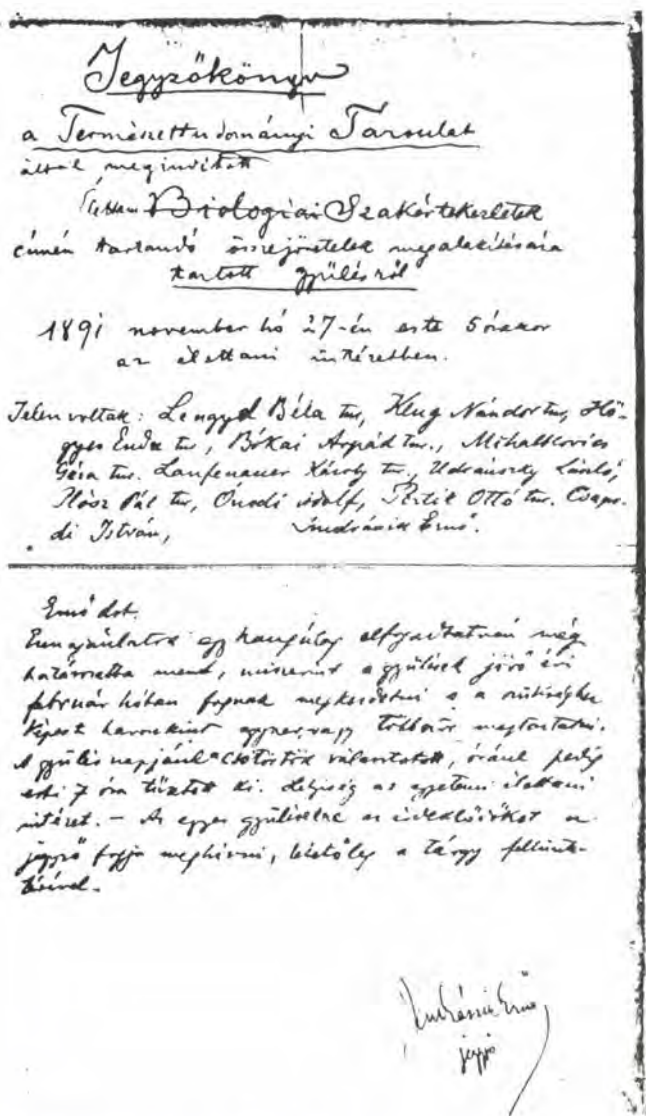 Jegyzőkönyv
a Természettudományi Társulat
által megindított
Élettani Biologiai Szakértekezletek
címén tartandó összejövetelek megalakítására
tartott gyülésről
1891 november hó 27-én este 5 órakor
az élettani intézetben.
Jelen voltak: Lengyel Béla tnr, Klug Nándor tnr, Hő-
gyes Endre tnr, Bókai Árpád tnr., Mihalkovics
Géza tnr. Laufenauer Károly tnr., Udránszky László,
Plósz Pál tnr, Ónodi Adolf, Pertik Ottó tnr. Csapo-
di István, Jendrássik Ernő.
Ernő dr.
Ezen ajánlatok egyhangúlag elfogadtatván még
határozatba ment, miszerint a gyülések jövő évi
február hóban fognak megkezdetni s a szükséghez
képest havonkint egyszer, vagy többször megtartatni.
A gyülés napjául a Csötörtök választatott, óráúl pedig
esti 7 óra tüzetett ki. Helyiség az egyetemi élettani
intézet. – Az egyes gyülésekre az érdeklődőket a
jegyző fogja meghívni, lehetőleg a tárgy feltünte-
tésével.
Jendrássik Ernő
jegyző